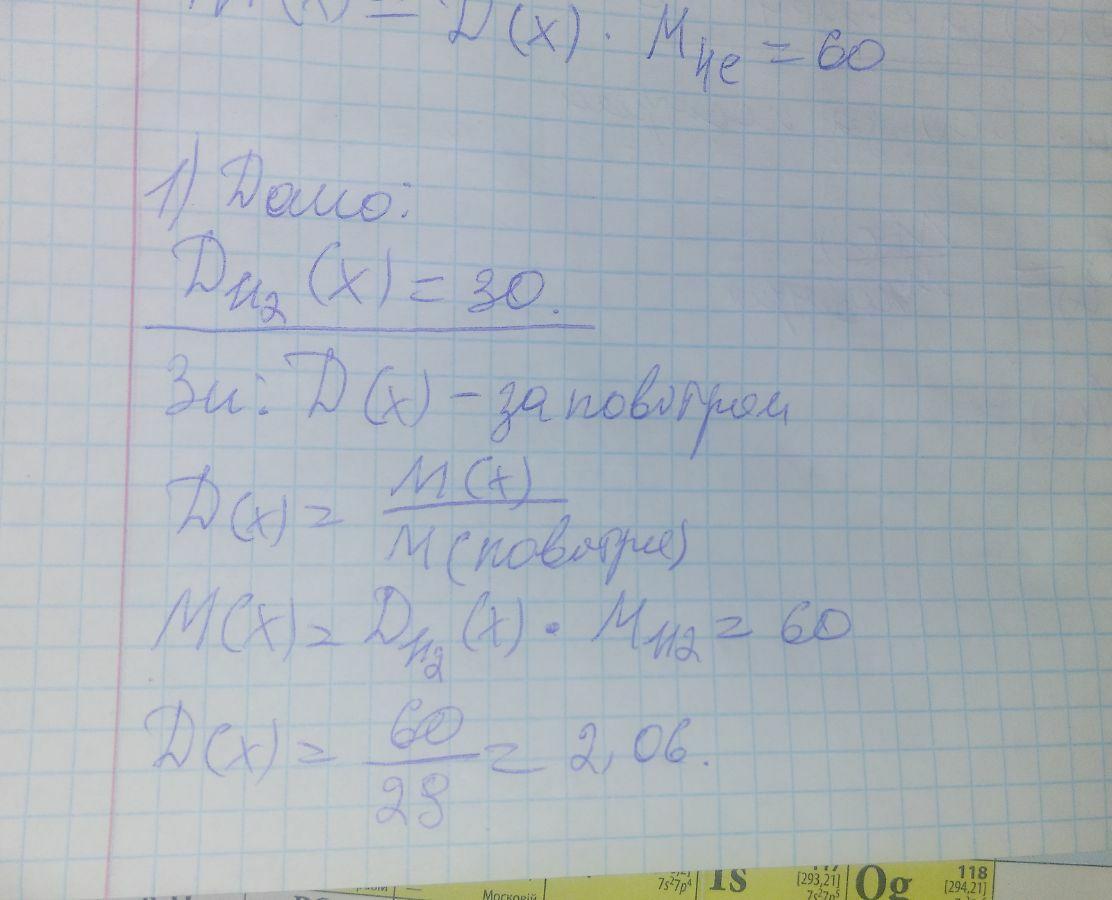 M(x) = D(x) · M_He = 60
1) Дано:
D_H₂ (x) = 30.
Зн: D(x) – за повітрям
D(x) = M(x) / M(повітря)
M(x) = D_H₂ (x) · M_H2 = 60
D(x) = 60 / 29 = 2,06.
Московій
7s²7p⁴
Ts
117
[293,21]
7s²7p⁵
Og
118
[294,21]